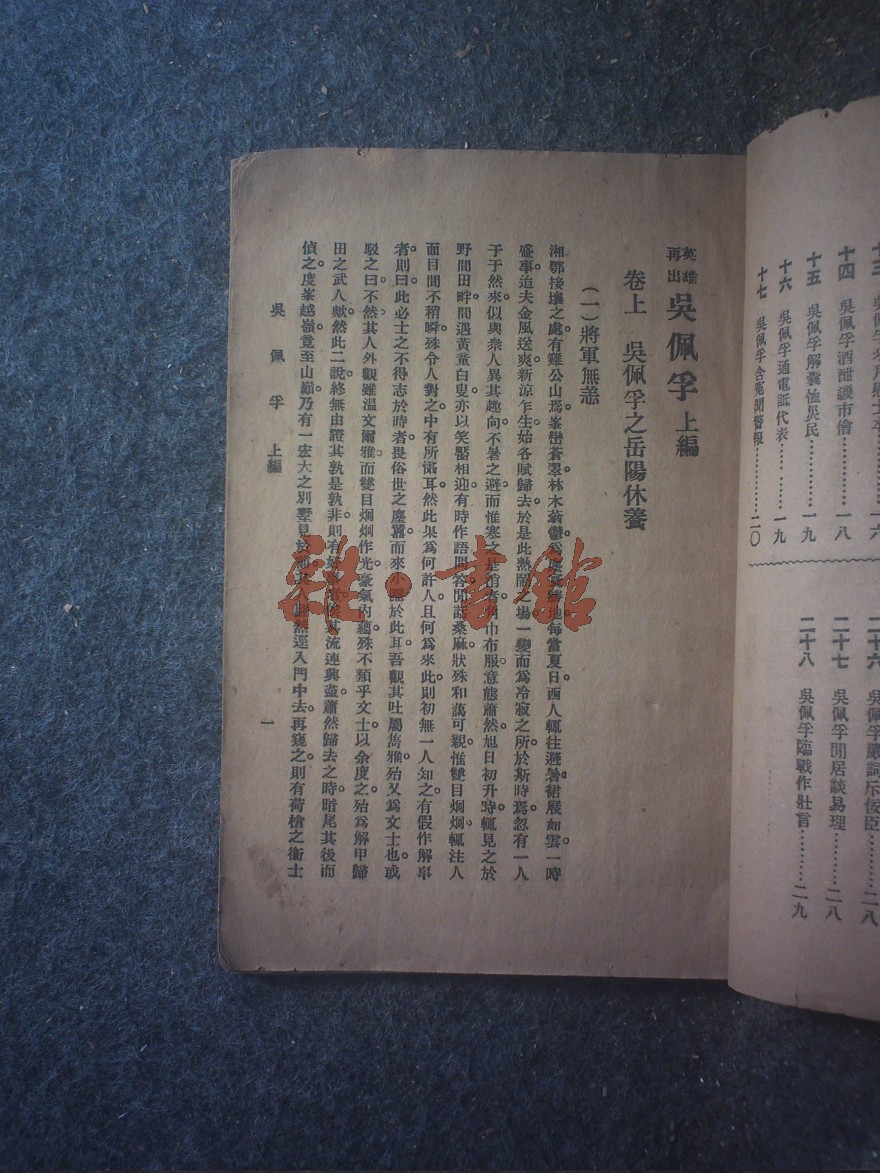 十四 吳佩孚酒酣譏市儈………一八
十五 吳佩孚解囊恤災民………一九
十六 吳佩孚通電詆代表………一九
十七 吳佩孚含冤聞警報………二〇
二十六 吳佩孚嚴詞斥佞臣………二八
二十七 吳佩孚閒居談易理………二八
二十八 吳佩孚臨戰作壯言………二九
英雄再出 吳佩孚 上編
卷上 吳佩孚之岳陽休養
（一）將軍無恙
湘鄂接壤之處。有雞公山焉。峯巒蒼翠。林木蓊鬱。爲 每當夏日。西人輒往避暑。裙屐如雲。一時
盛事。迨夫金風送爽。新涼乍生。始各賦歸去。於是此熱鬧之場。一變而爲冷寂之所。於斯時焉。忽有一人
于于然來。似與衆人異其趣向。不暑之避。而惟寒之是消者。角巾布服。意態蕭然。旭日初升時。輒見之於
野間田畔間。遇黃童白叟。亦以笑靨相迎。有時作語。問答閒話桑麻。狀殊和藹可親。惟雙目炯炯。輒注人
面目間不稍瞬。殊令人對之中有所懾耳。然此果爲何許人。且何爲來此。則初無一人知之。有假作解事
者。則曰。此必士之不得志於時者。畏俗世之塵囂。而來小隱於此耳。吾觀其吐屬雋雅。殆又爲文士也。或
駁之曰。不然。其人外觀雖溫文爾雅。而雙目炯炯作光。豪氣內蘊。殊不類乎文士。以余度之。殆爲解甲歸
田之武人歟。然此二說。終無由證其孰是孰非。則有好 流連興盡。蕭然歸去之時。暗尾其後而
偵之。度峯越嶺。竟至山巔。乃有一宏大之別墅。見於 其人 然逕入門中去。再窺之。則有荷槍之衞士
吳佩孚 上編
一
雜·書館